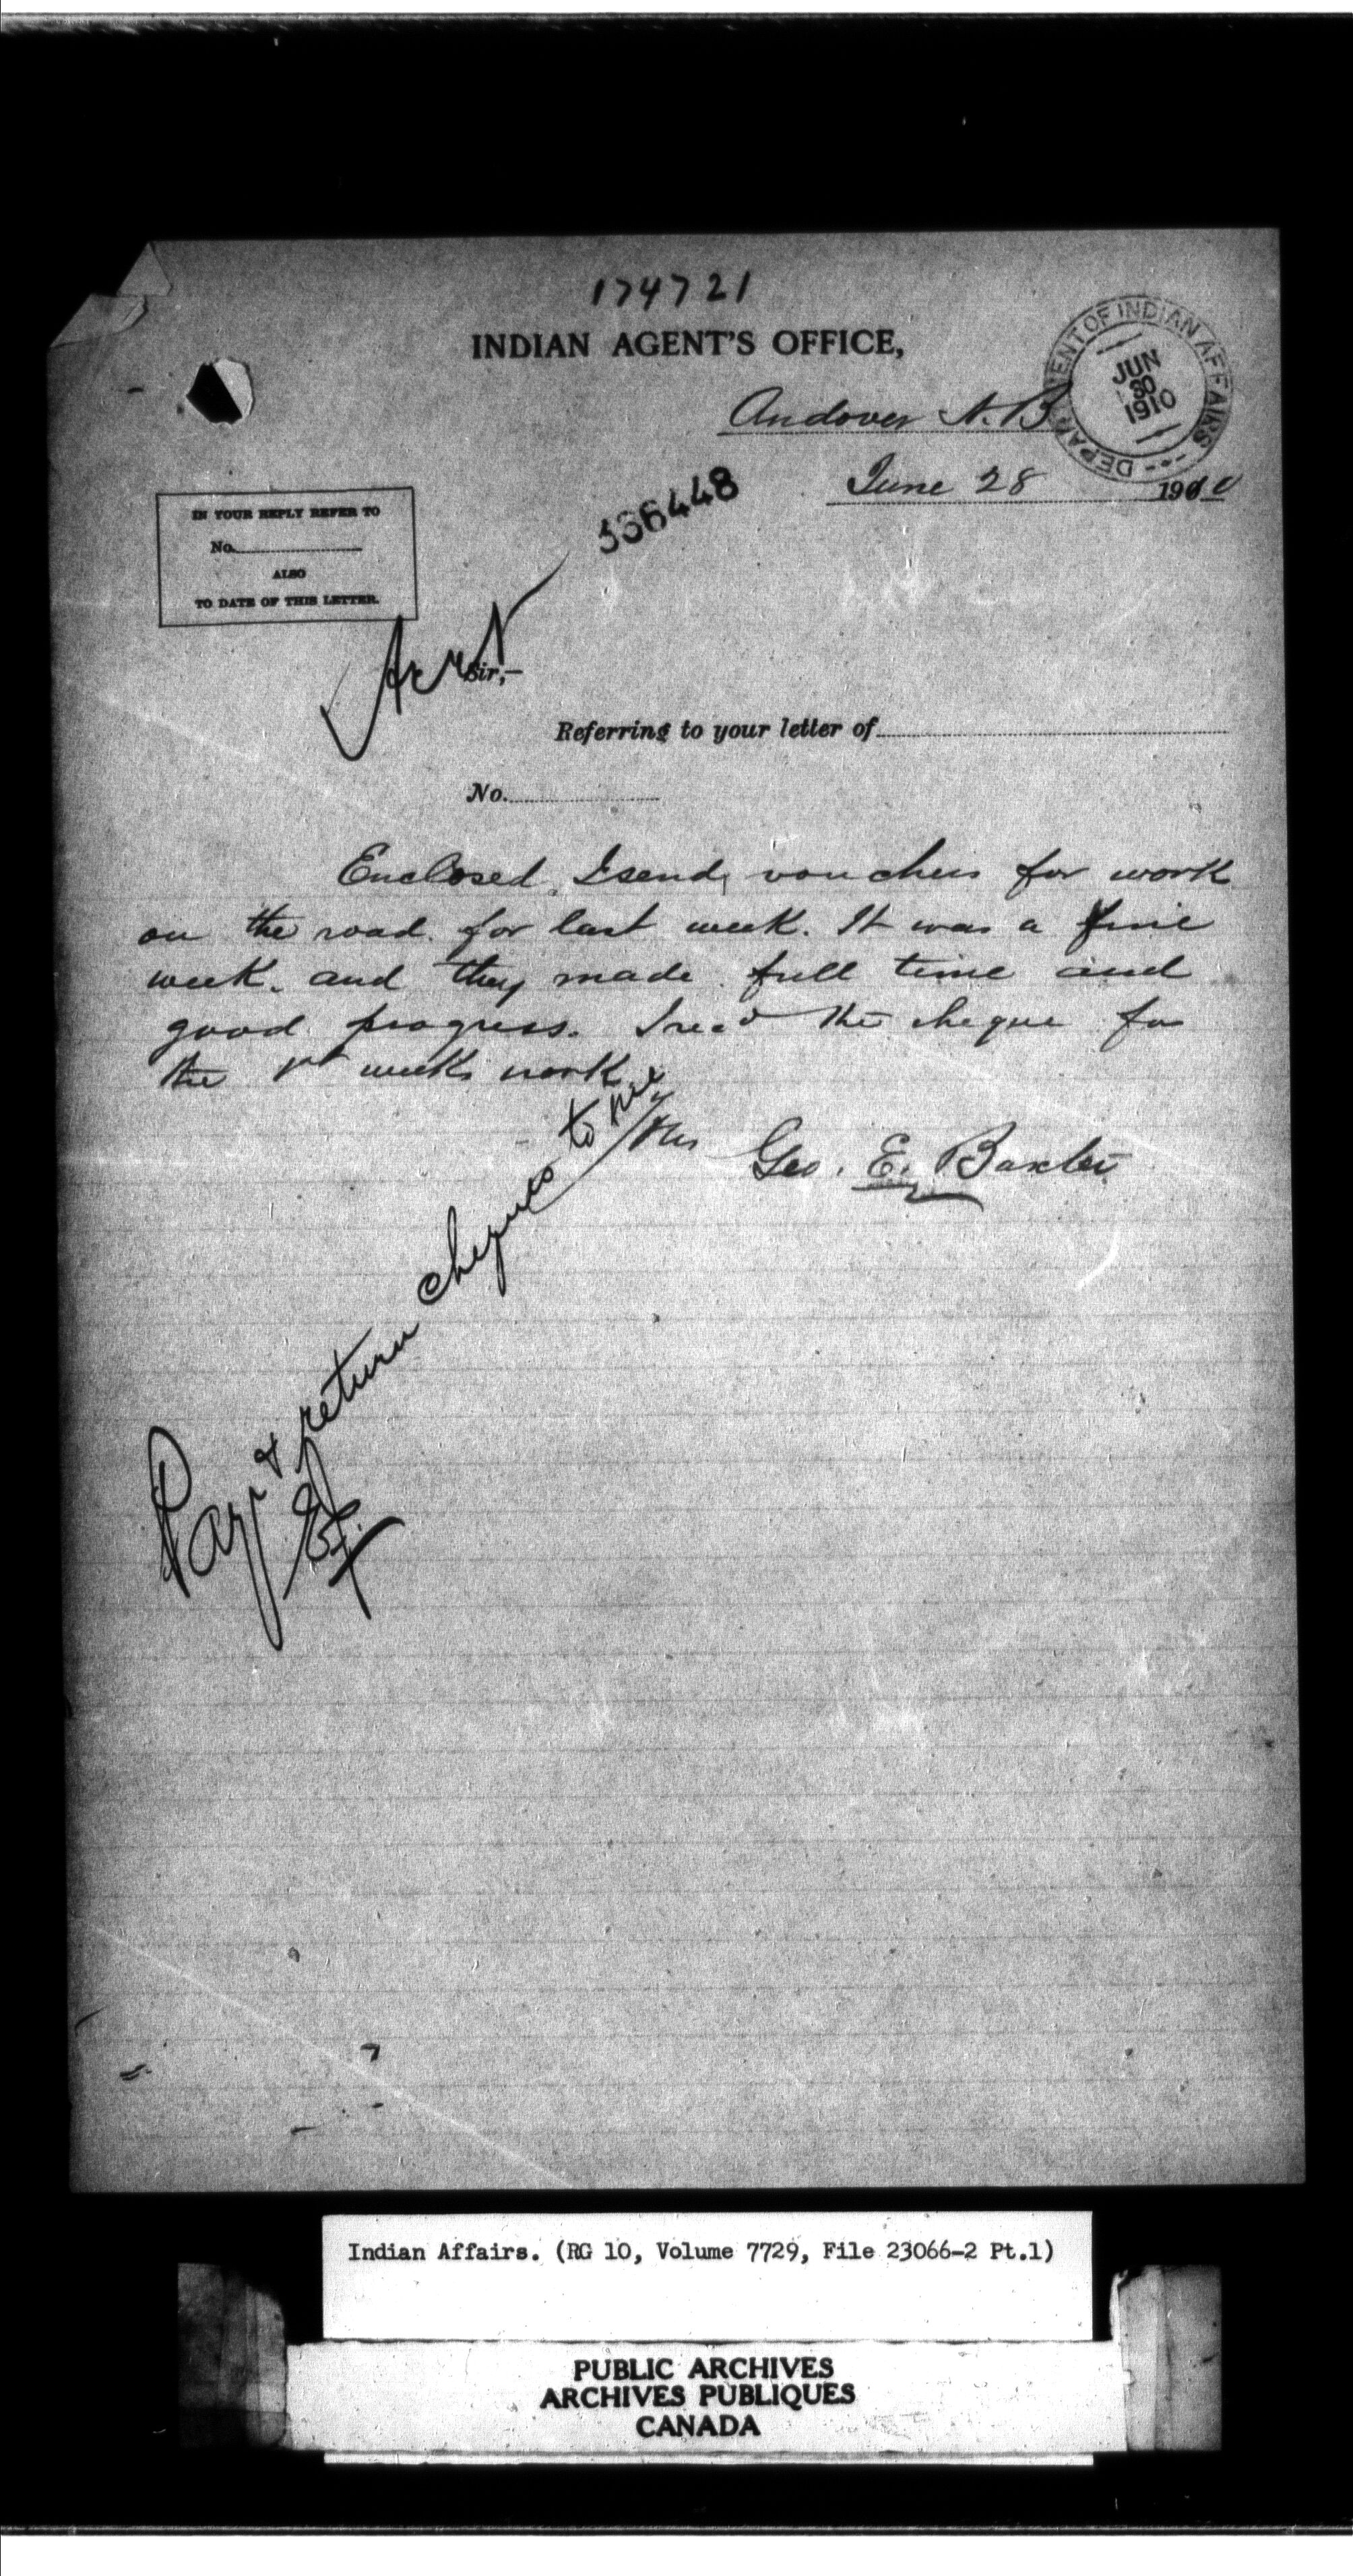 174721
INDIAN AGENT'S OFFICE,
DEPARTMENT OF INDIAN AFFAIRS
JUN
30
1910
Andover N.B
June 28 1910
336448
IN YOUR REPLY REFER TO
No.
ALSO
TO DATE OF THIS LETTER.
Sir,—
Referring to your letter of
No.
Enclosed I send vouchers for work
on the road for last week. It was a fine
week. and they made full time and
good progress. I recd the cheque for
the 1st weeks work.
Geo. E. Baxter
Pay & return cheques to me
Indian Affairs. (RG 10, Volume 7729, File 23066-2 Pt.1)
PUBLIC ARCHIVES
ARCHIVES PUBLIQUES
CANADA